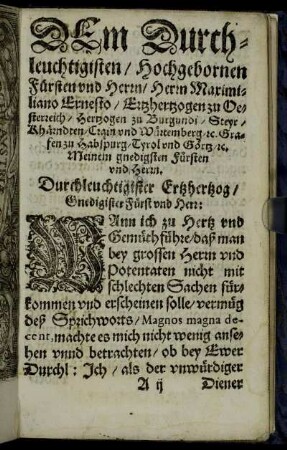 DEm Durch-
leuchtigisten / Hochgebornen
Fürsten vnd Herrn / Herrn Maximi-
liano Ernesto / Ertzhertzogen zu Oe-
sterreich / Hertzogen zu Burgundi / Steyr /
Khärndten / Crain vnd Würtemberg / ꝛc. Gra-
fen zu Habspurg / Tyrol vnd Görtz / ꝛc.
Meinem gnedigsten Fürsten
vnd Herrn.
Durchleuchtigister Ertzhertzog /
Gnedigister Fürst vnd Herr:
WAnn ich zu Hertz vnd
Gemüth führe / daß man
bey grossen Herrn vnd
Potentaten nicht mit
schlechten Sachen für-
kommen vnd erscheinen solle / vermüg
deß Sprichworts / Magnos magna de-
cent, machte es mich nicht wenig anse-
hen vnnd betrachten / ob bey Ewer
Durchl: Jch / als der vnwürdiger
A ij Diener